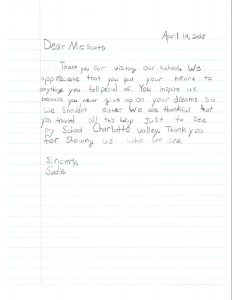 April 19, 2018
Dear Mr. Scott,
Thank you for visiting our school. We
appreciate that you put your heart to
anything you tell of. You inspire us
because you never give up on your dreams so
we shouldn't either. We are thankful that
you traveld all this way just to see
my school Charlotte Valley. Thank you
for showing us who we are.
Sincerly,
Sadie